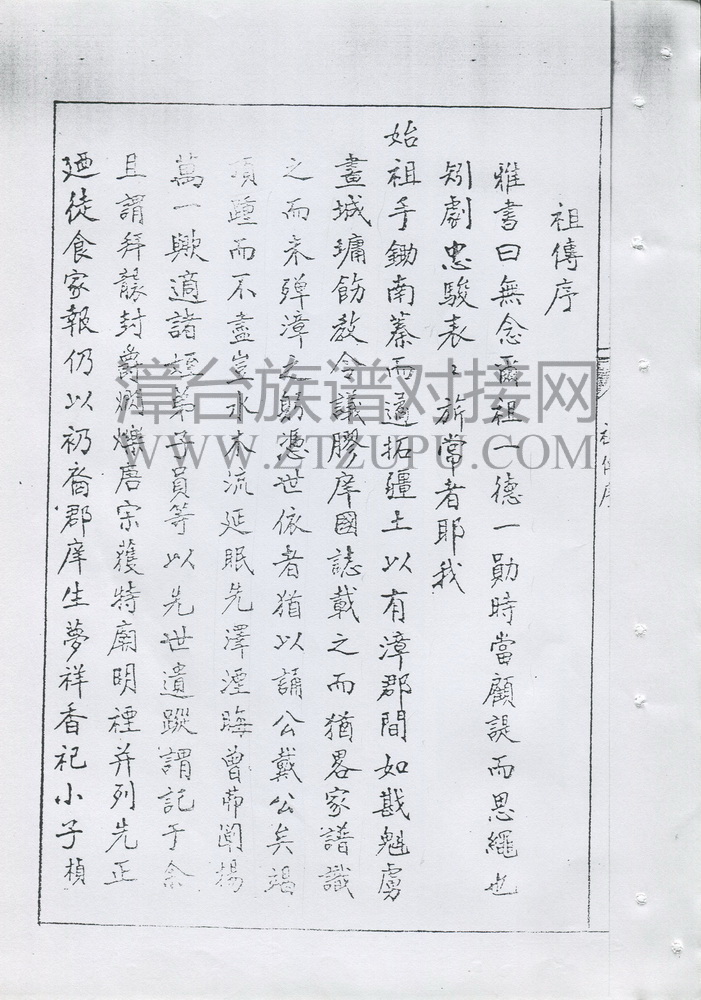 祖傳序
雅書曰無念爾祖一德一勛時當顧諟而思繩也
矧劇忠駿表〻旂當者耶我
始祖手鋤南蓁而遹拓疆土以有漳郡間如戡魁虜
畫城墉飭教令議膠庠國誌載之而猶畧家譜識
之而未殫漳之賜憑世依者猶以誦公戴公矣竭
頂踵而不盡豈水木流延眠先澤湮晦曾茀闡揚
萬一歟適諸姪弟子員等以先世遺蹤謂記于余
且謂拜襲封爵炳燐唐宗獲特廟明禋并列先正
廼徒食家報仍以礽裔郡庠生夢祥香祀小子楨
祖傳序
漳台族谱对接网
WWW.ZTZUPU.COM